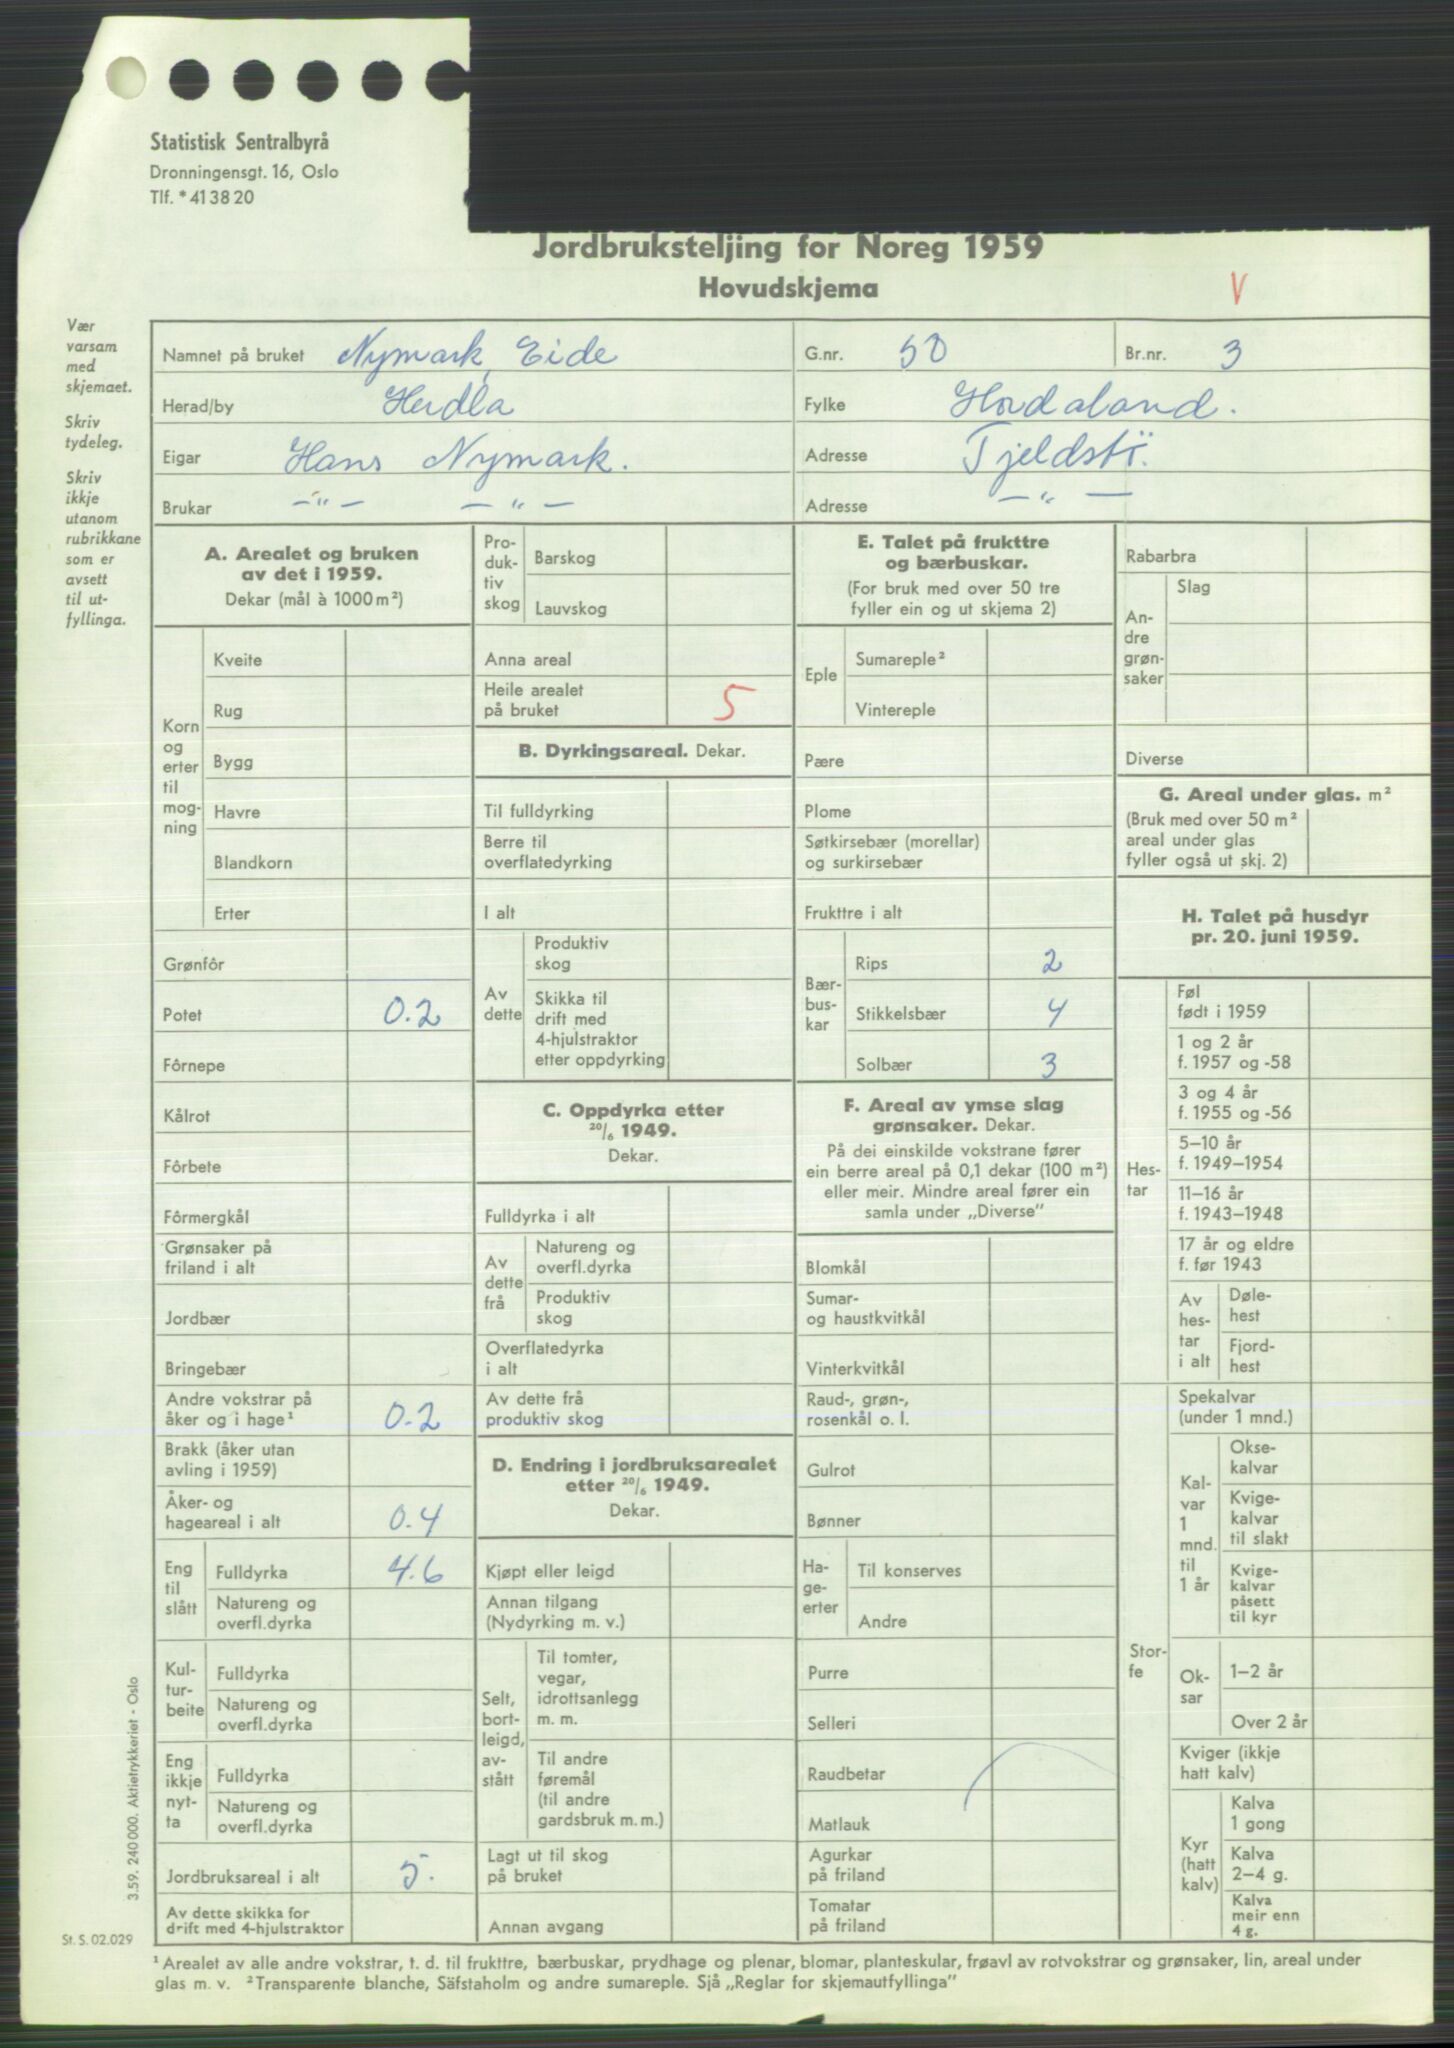 Statistisk Sentralbyrå
Dronningensgt. 16, Oslo
Tlf. * 41 38 20
Jordbruksteljing for Noreg 1959
Hovudskjema
V
Vær
varsam
med
skjemaet.
Skriv
tydeleg.
Skriv
ikkje
utanom
rubrikkane
som er
avsett
til ut-
fyllinga.
Namnet på bruket Nymark, Eide G.nr. 50 Br.nr. 3
Herad/by Herdla Fylke Hordaland.
Eigar Hans Nymark. Adresse Tjeldstö.
Brukar —"— —"— Adresse —"—
A. Arealet og bruken
av det i 1959.
Dekar (mål à 1000 m²)
Korn
og
erter
til
mog-
ning
Kveite
Rug
Bygg
Havre
Blandkorn
Erter
Grønfôr
Potet 0.2
Fôrnepe
Kålrot
Fôrbete
Fôrmergkål
Grønsaker på
friland i alt
Jordbær
Bringebær
Andre vokstrar på
åker og i hage¹ 0.2
Brakk (åker utan
avling i 1959)
Åker- og
hageareal i alt 0.4
Eng
til
slått
Fulldyrka 4.6
Natureng og
overfl.dyrka
Kul-
tur-
beite
Fulldyrka
Natureng og
overfl.dyrka
Eng
ikkje
nyt-
ta
Fulldyrka
Natureng og
overfl.dyrka
Jordbruksareal i alt 5.
Av dette skikka for
drift med 4-hjulstraktor
Pro-
duk-
tiv
skog
Barskog
Lauvskog
Anna areal
Heile arealet
på bruket 5
B. Dyrkingsareal. Dekar.
Til fulldyrking
Berre til
overflatedyrking
I alt
Av
dette
Produktiv
skog
Skikka til
drift med
4-hjulstraktor
etter oppdyrking
C. Oppdyrka etter
20/6 1949.
Dekar.
Fulldyrka i alt
Av
dette
frå
Natureng og
overfl.dyrka
Produktiv
skog
Overflatedyrka
i alt
Av dette frå
produktiv skog
D. Endring i jordbruksarealet
etter 20/6 1949.
Dekar.
Kjøpt eller leigd
Annan tilgang
(Nydyrking m. v.)
Selt,
bort-
leigd,
av-
stått
Til tomter,
vegar,
idrottsanlegg
m. m.
Til andre
føremål
(til andre
gardsbruk m. m.)
Lagt ut til skog
på bruket
Annan avgang
E. Talet på frukttre
og bærbuskar.
(For bruk med over 50 tre
fyller ein og ut skjema 2)
Eple
Sumareple²
Vintereple
Pære
Plome
Søtkirsebær (morellar)
og surkirsebær
Frukttre i alt
Bær-
bus-
kar
Rips 2
Stikkelsbær 4
Solbær 3
F. Areal av ymse slag
grønsaker. Dekar.
På dei einskilde vokstrane fører
ein berre areal på 0,1 dekar (100 m²)
eller meir. Mindre areal fører ein
samla under „Diverse”
Blomkål
Sumar-
og haustkvitkål
Vinterkvitkål
Raud-, grøn-,
rosenkål o. l.
Gulrot
Bønner
Ha-
ge-
erter
Til konserves
Andre
Purre
Selleri
Raudbetar
Matlauk
Agurkar
på friland
Tomatar
på friland
Rabarbra
An-
dre
grøn-
saker
Slag
Diverse
G. Areal under glas. m²
(Bruk med over 50 m²
areal under glas
fyller også ut skj. 2)
H. Talet på husdyr
pr. 20. juni 1959.
Hes-
tar
Føl
født i 1959
1 og 2 år
f. 1957 og -58
3 og 4 år
f. 1955 og -56
5–10 år
f. 1949–1954
11–16 år
f. 1943–1948
17 år og eldre
f. før 1943
Av
hes-
tar
i alt
Døle-
hest
Fjord-
hest
Stor-
fe
Spekalvar
(under 1 mnd.)
Kal-
var
1
mnd.
til
1 år
Okse-
kalvar
Kvige-
kalvar
til slakt
Kvige-
kalvar
påsett
til kyr
Ok-
sar
1–2 år
Over 2 år
Kviger (ikkje
hatt kalv)
Kyr
(hatt
kalv)
Kalva
1 gong
Kalva
2–4 g.
Kalva
meir enn
4 g.
3.59. 240 000. Aktietrykkeriet - Oslo
St. S. 02.029
¹ Arealet av alle andre vokstrar, t. d. til frukttre, bærbuskar, prydhage og plenar, blomar, planteskular, frøavl av rotvokstrar og grønsaker, lin, areal under
glas m. v. ² Transparente blanche, Säfstaholm og andre sumareple. Sjå „Reglar for skjemautfyllinga”